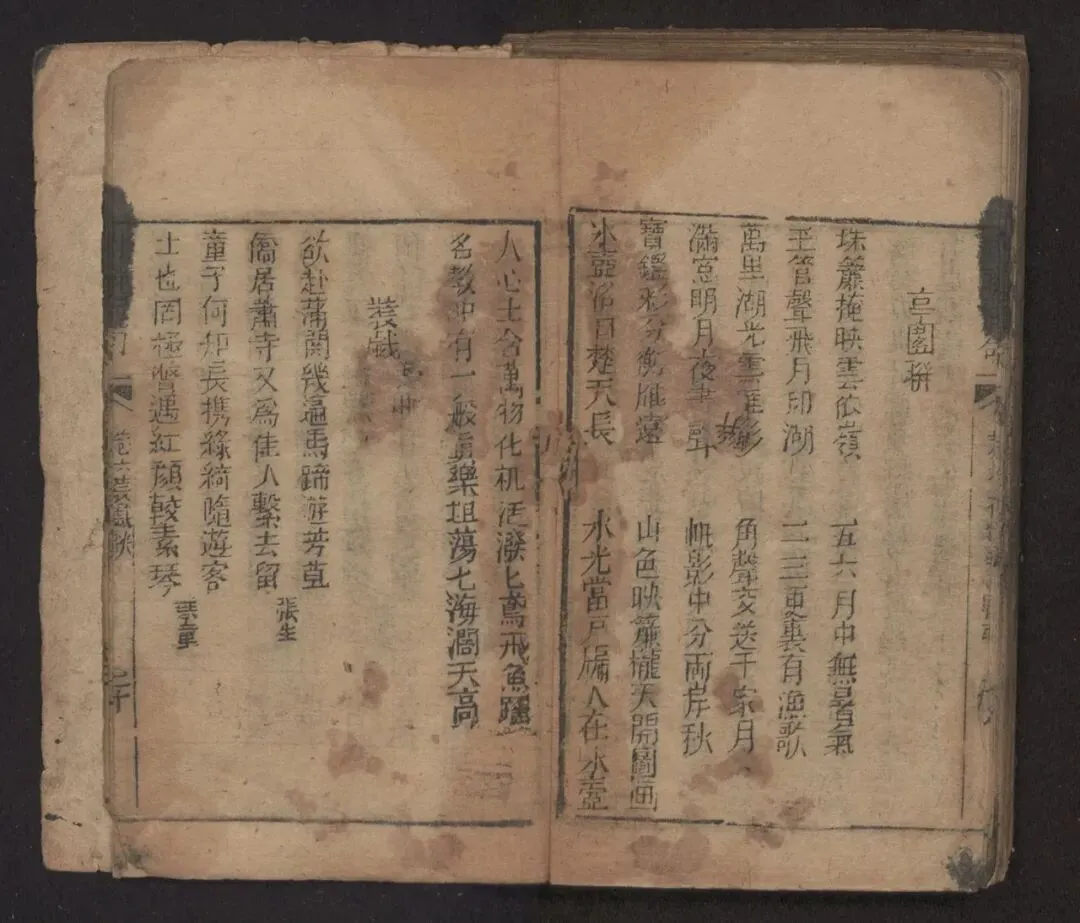 亭園聯
珠簾掩映雲依嶺 五六月中無暑氣
玉管聲飛月印湖 二三更裏有漁歌
萬里湖光雪 影 角聲交送千家月
滿窓明月夜 聲 帆影中分兩岸秋
寶鏡形分衡雁遠 山色映簾櫳天開圖画
氷壺 日楚天長 水光當戶牖人在氷壺
人心士含萬物化机活潑匕鳶飛魚躍
名教中有一般真樂坦蕩匕海濶天高
裝戲
欲赴蒲関幾逼馬蹄遊芳草
僑居蕭寺又為佳人繫去留 張生
童子何知長携綠綺隨遊客
士也罔極曾遇紅顔較素琴 琴童
卷六裝戲聯